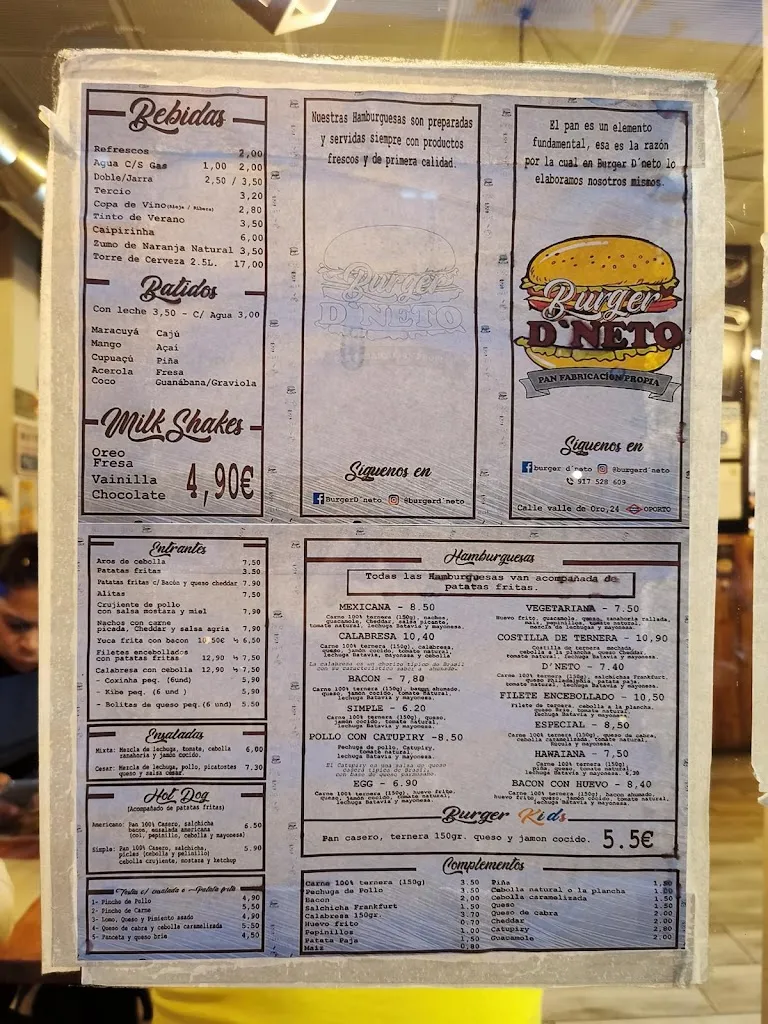 Bebidas
Refrescos 2,00
Agua C/S Gas 1,00 2,00
Doble/Jarra 2,50 / 3,50
Tercio 3,20
Copa de Vino (Rioja / Ribera) 2,80
Tinto de Verano 3,50
Caipirinha 6,00
Zumo de Naranja Natural 3,50
Torre de Cerveza 2.5L. 17,00
Batidos
Con leche 3,50 - C/ Agua 3,00
Maracuyá Cajú
Mango Açai
Cupuaçú Piña
Acerola Fresa
Coco Guanábana/Graviola
Milk Shakes
Oreo
Fresa
Vainilla
Chocolate
4,90€
Nuestras Hamburguesas son preparadas
y servidas siempre con productos
frescos y de primera calidad.
Burger
D'NETO
Siguenos en
BurgerD'neto @burgerd'neto
El pan es un elemento
fundamental, esa es la razón
por la cual en Burger D'neto lo
elaboramos nosotros mismos.
Burger
D'NETO
PAN FABRICACIÓN PROPIA
Siguenos en
burger d'neto @burgerd'neto
917 528 609
Calle valle de Oro,24 OPORTO
Entrantes
Aros de cebolla 7,50
Patatas fritas 3.50
Patatas fritas c/Bacón y queso cheddar 7.90
Alitas 7.50
Crujiente de pollo
con salsa mostaza y miel 7,90
Nachos con carne
picada, Cheddar y salsa agria 7,90
Yuca frita con bacon 10,50€ ½ 6,50
Filetes encebollados
con patatas fritas 12,90 ½ 7,50
Calabresa con cebolla 12,90 ½ 7,50
- Coxinha peq. (6und) 5,90
- Kibe peq. (6 und ) 5,90
- Bolitas de queso peq.(6 und) 5.50
Ensaladas
Mixta: Mezcla de lechuga, tomate, cebolla
zanahoria y jamón cocido. 6,00
Cesar: Mezcla de lechuga, pollo, picatostes
queso y salsa cesar. 7.30
Hot Dog
(Acompañado de patatas fritas)
Americano: Pan 100% Casero, salchicha
bacon, ensalada americana
(col, pepinillo, cebolla y mayonesa) 6.50
Simple: Pan 100% Casero, salchicha,
picles (cebolla y pelinillo)
cebolla crujiente, mostaza y ketchup 5.90
1- Pincho de Pollo 4,90
2- Pincho de Carne 5,50
3- Lomo, Queso y Pimiento asado 4,90
4- Queso de cabra y cebolla caramelizada 5.50
5- Panceta y queso brie 4,50
Hamburguesas
Todas las Hamburguesas van acompañada de
patatas fritas.
MEXICANA - 8.50
Carne 100% ternera (150g), nachos,
guacamole, Cheddar, salsa picante,
tomate natural,
lechuga Batavia y mayonesa.
CALABRESA 10,40
Carne 100% ternera (150g), calabresa,
queso, jamón cocido, tomate natural,
lechuga Batavia, mayonesa y cebolla.
La calabresa es un chorizo típico de Brasil
con su característico sabor a ahumado.
BACON - 7,80
Carne 100% ternera (150g), bacon ahumado,
queso, jamón cocido, tomate natural,
lechuga Batavia y mayonesa.
SIMPLE - 6.20
Carne 100% ternera (150g), queso,
jamón cocido, tomate natural,
lechuga Batavia y mayonesa.
POLLO CON CATUPIRY -8.50
Pechuga de pollo, Catupiry,
tomate natural,
lechuga Batavia y mayonesa.
El Catupiry es una salsa de queso
EGG - 6.90
Carne 100% ternera (150g), huevo frito,
queso, jamón cocido, tomate natural,
lechuga Batavia y mayonesa.
VEGETARIANA - 7.50
Huevo frito, guacamole, queso, zanahoria rallada,
maíz, pepinillos, tomate natural,
COSTILLA DE TERNERA - 10,90
Costilla de ternera mechada
cebolla a la plancha, queso Cheddar,
tomate natural, lechuga Batavia y mayonesa.
D'NETO - 7.40
Carne 100% ternera (150g), salchichas Frankfurt,
queso Philadelphia, patata paja,
tomate natural, lechuga Batavia y mayonesa.
FILETE ENCEBOLLADO - 10,50
Filete de ternera, cebolla a la plancha,
queso Brie, tomate natural,
lechuga Batavia y mayonesa.
ESPECIAL - 8,50
Carne 100% ternera (150g), queso de cabra,
cebolla caramelizada, tomate natural,
Rúcula y mayonesa.
HAWAIANA - 7,50
Carne 100% ternera (150g)
piña, queso, tomate natural,
lechuga Batavia y mayonesa. 6,30
BACON CON HUEVO - 8,40
Carne 100% ternera (150g), Bacon ahumado,
huevo frito, queso, jamón cocido, tomate natural,
lechuga Batavia y mayonesa.
Burger Kids
Pan casero, ternera 150gr. queso y jamon cocido. 5.5€
Complementos
Carne 100% ternera (150g) 3.50
Pechuga de Pollo 3.50
Bacon 2,00
Salchicha Frankfurt 1,50
Calabresa 150gr. 3.70
Huevo frito 0.70
Pepinillos 1,00
Patata Paja 1,50
Maíz 0,80
Piña 1,50
Cebolla natural o la plancha 1.00
Cebolla caramelizada 1.50
Queso 1.50
Queso de cabra 2.00
Cheddar 2.00
Catupiry 2,80
Guacamole 2.00